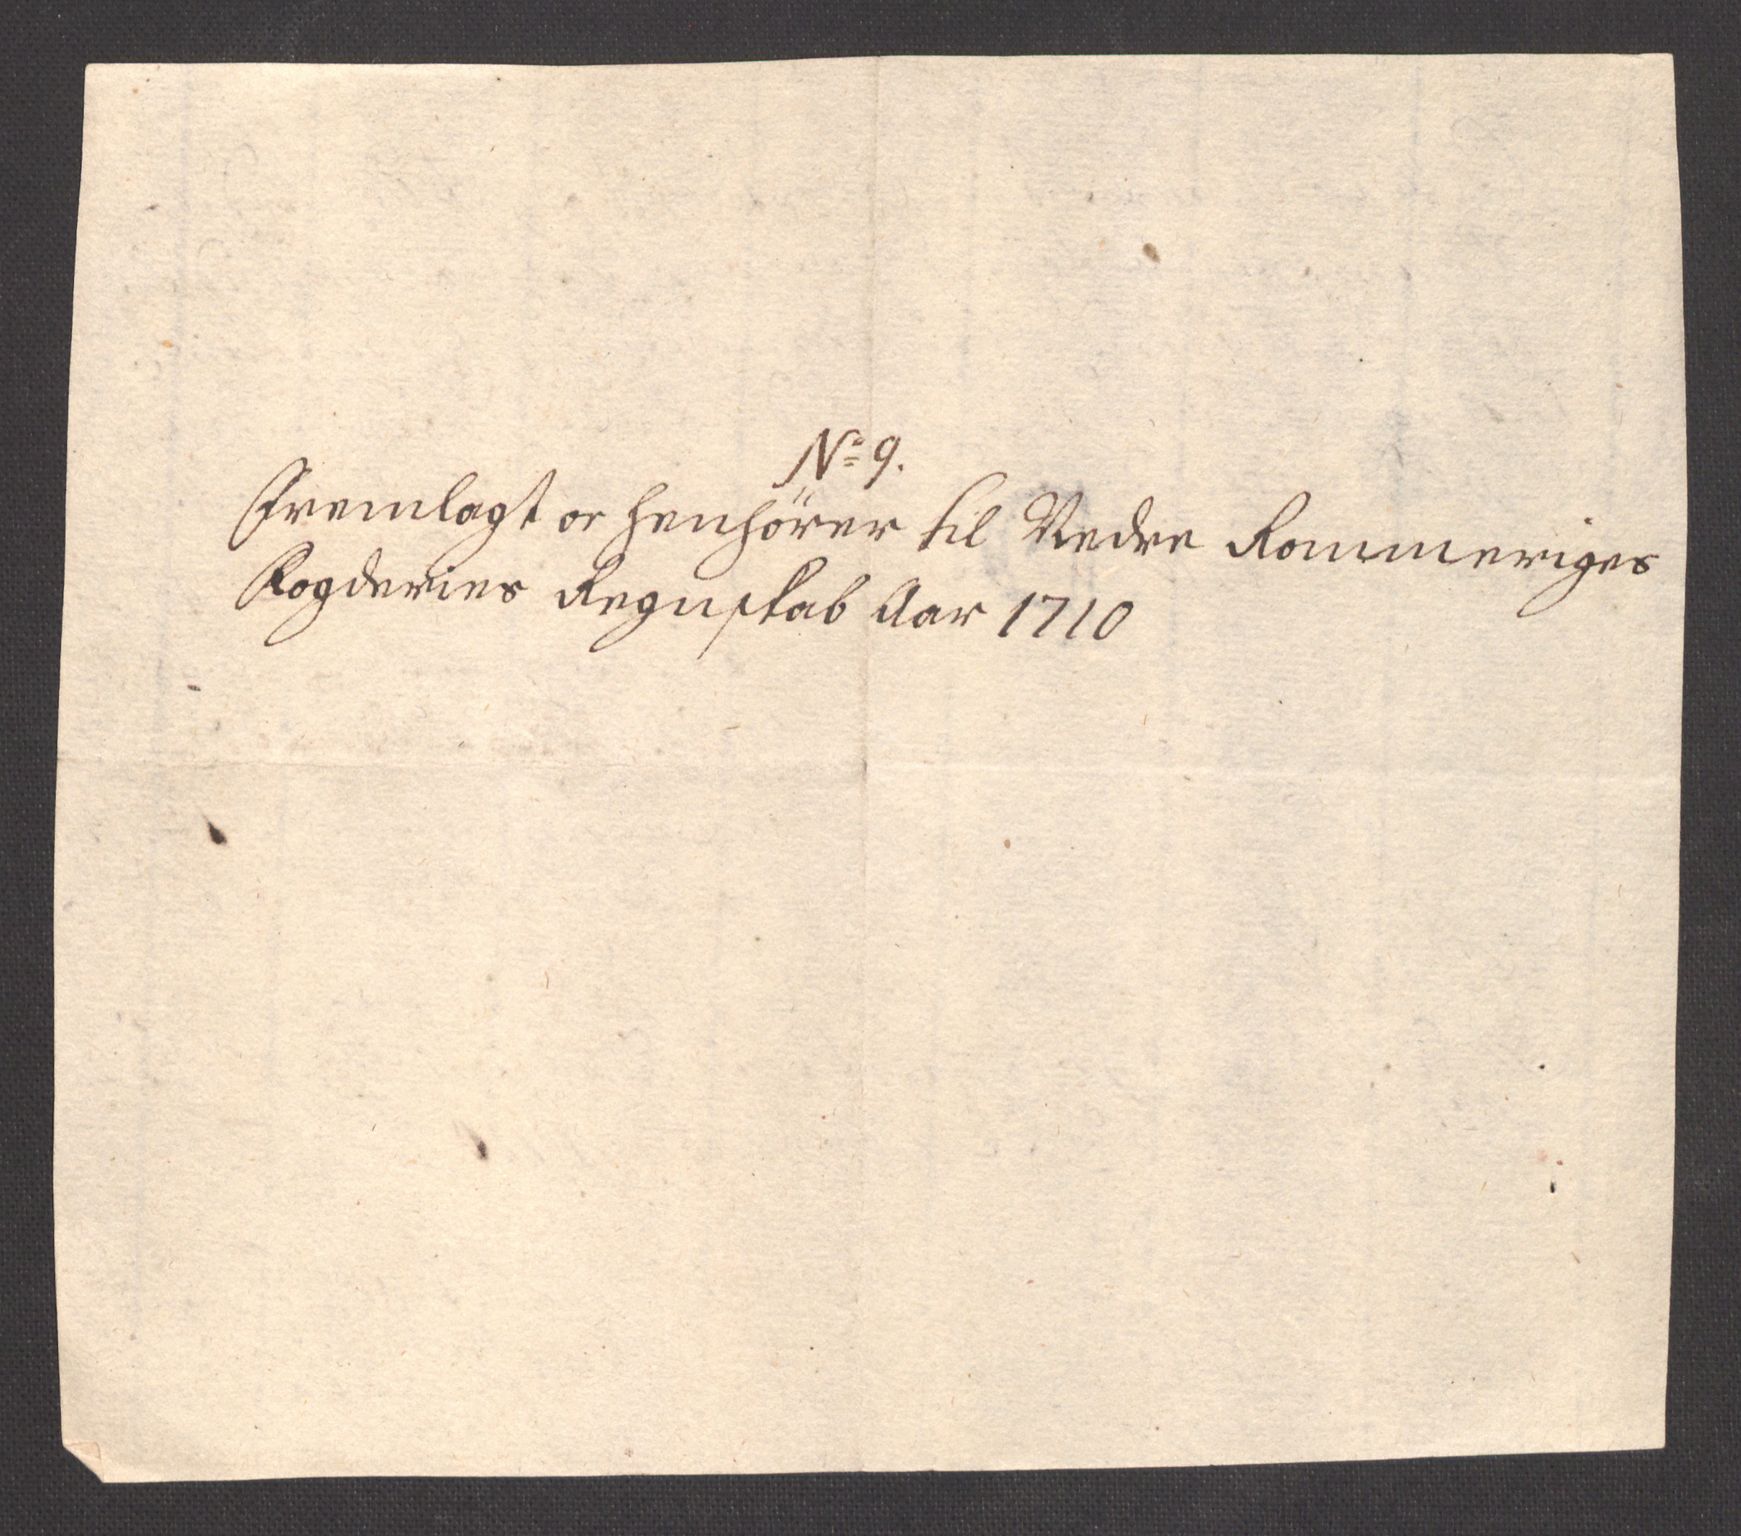 No 9.
Fremlagt oc henhörer til Nedre Rommeriges
Fogderies Regnskab Aar 1710